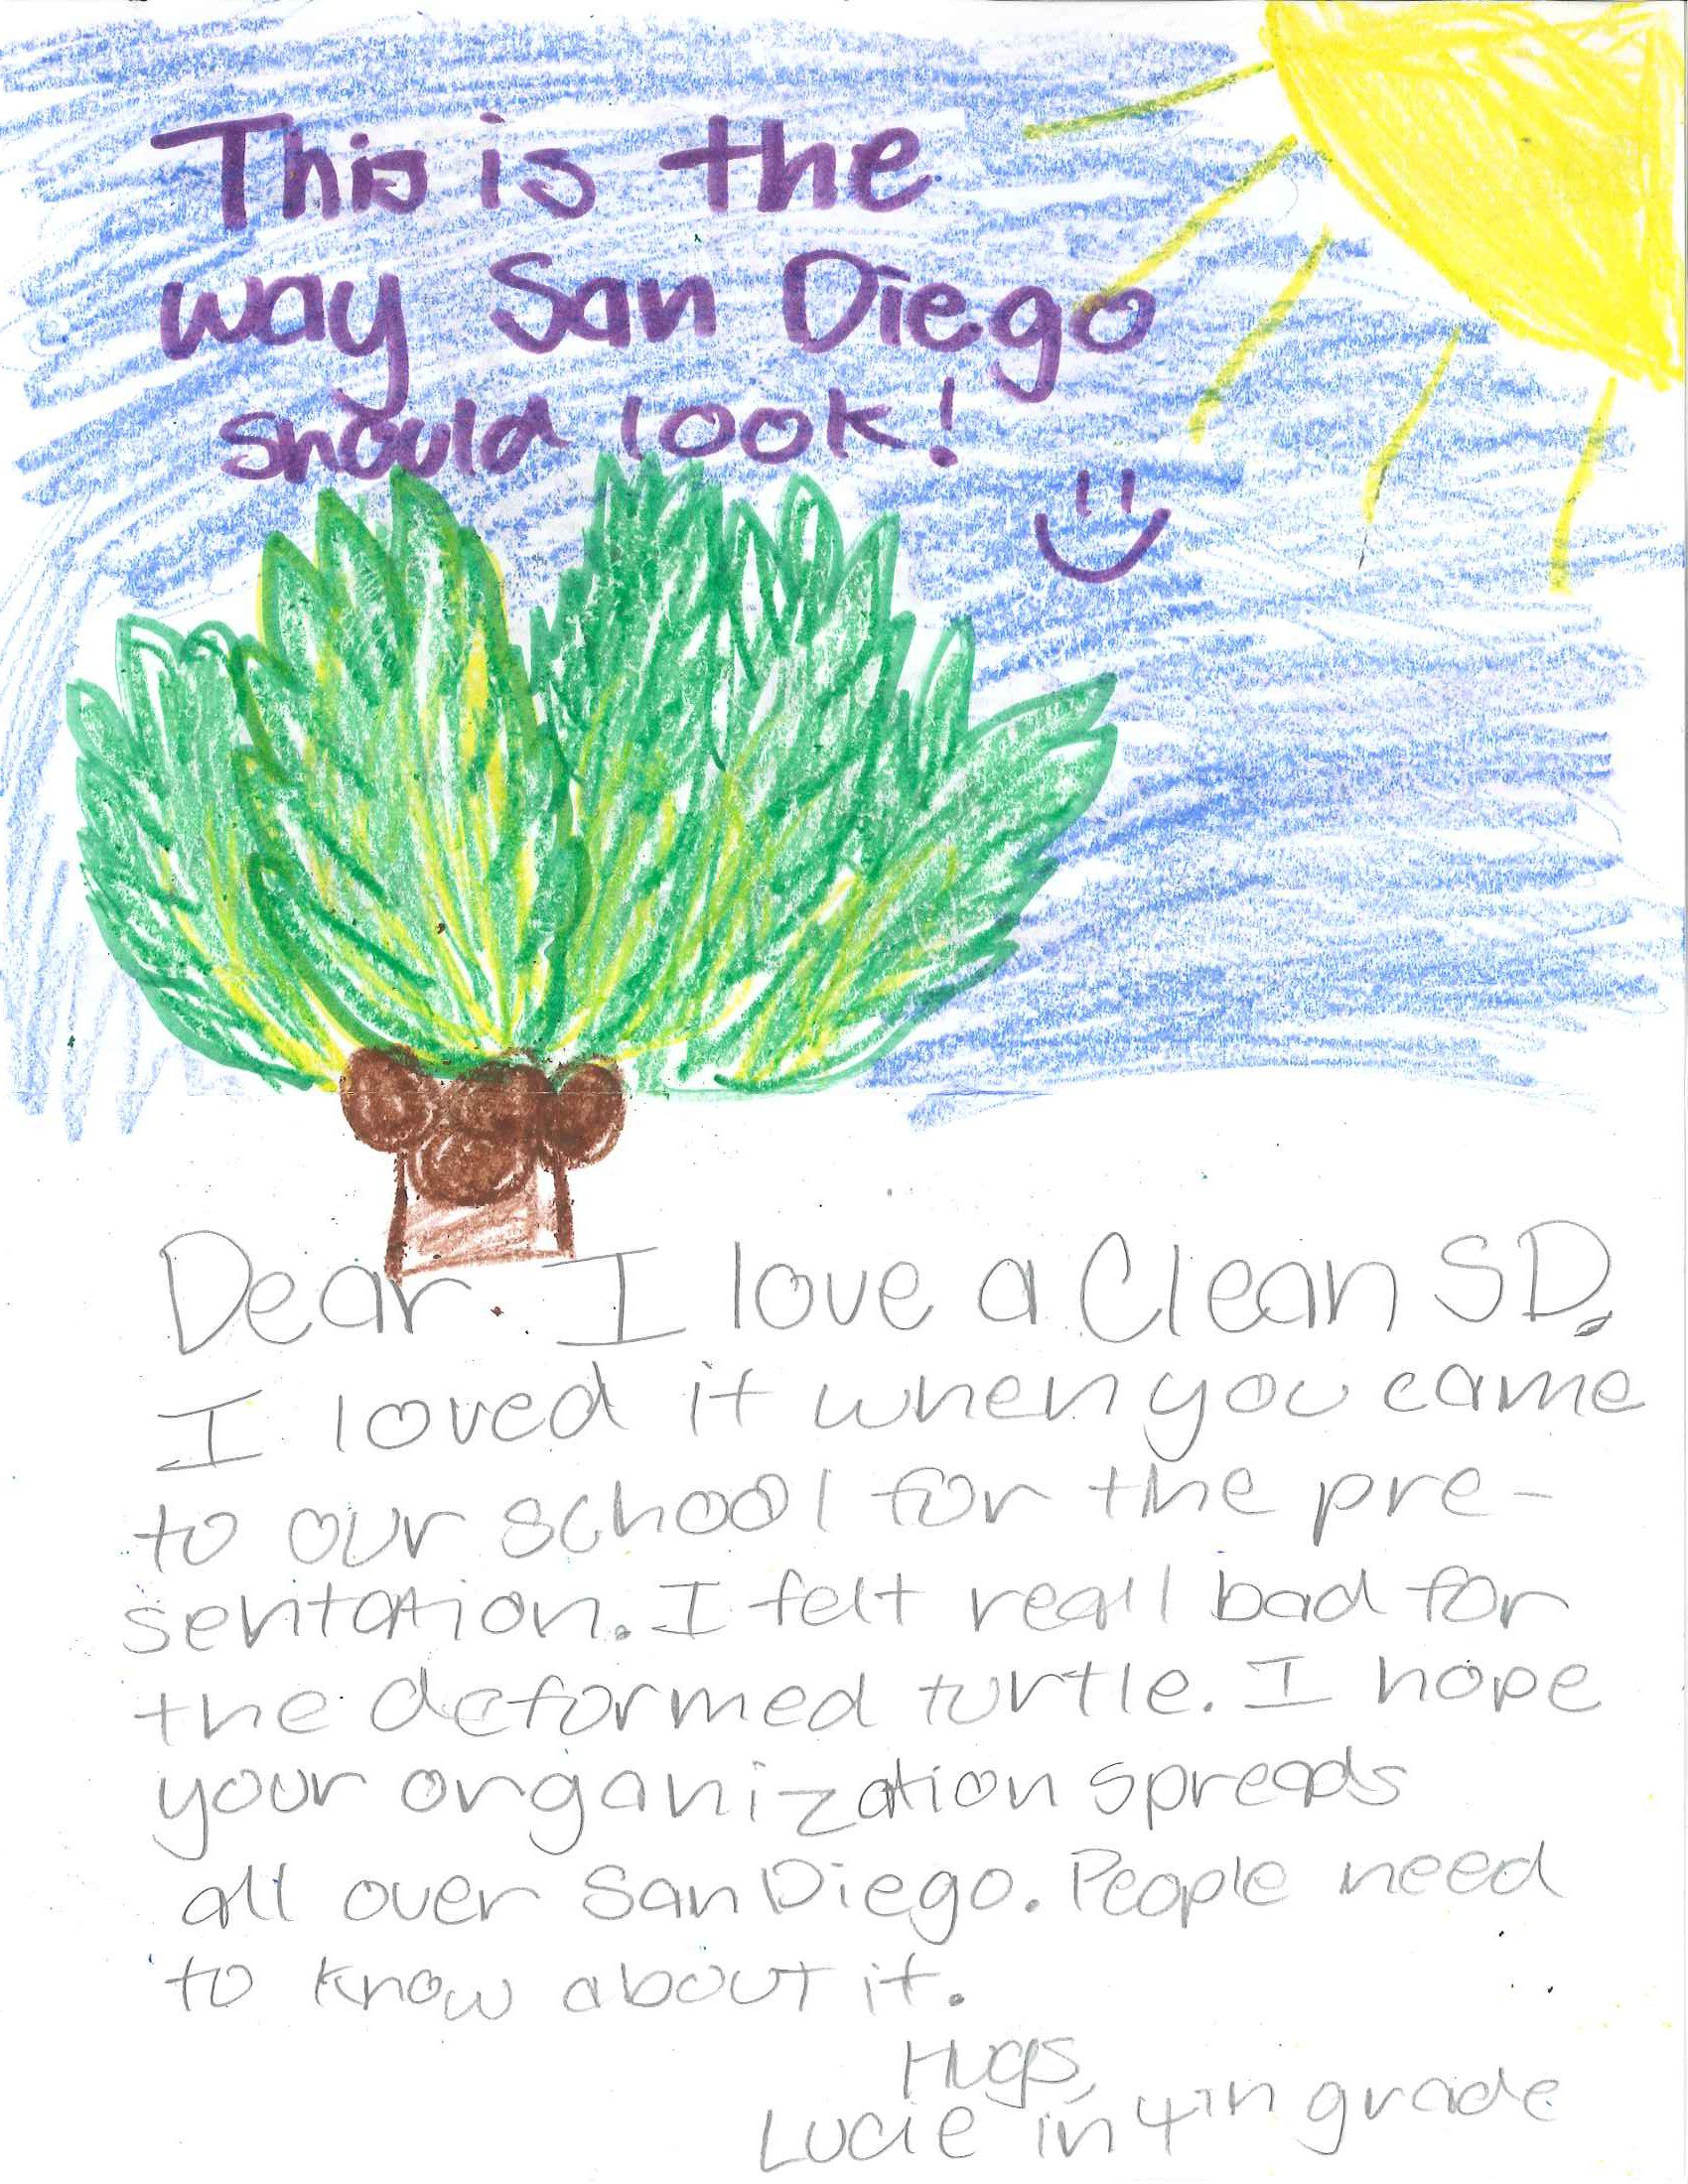 This is the
way San Diego
should look!
Dear I love a Clean SD.
I loved it when you came
to our school for the pre-
sentation. I felt reall bad for
the deformed turtle. I hope
your organization spreads
all over San Diego. People need
to know about it.
Hugs,
Lucie in 4th grade